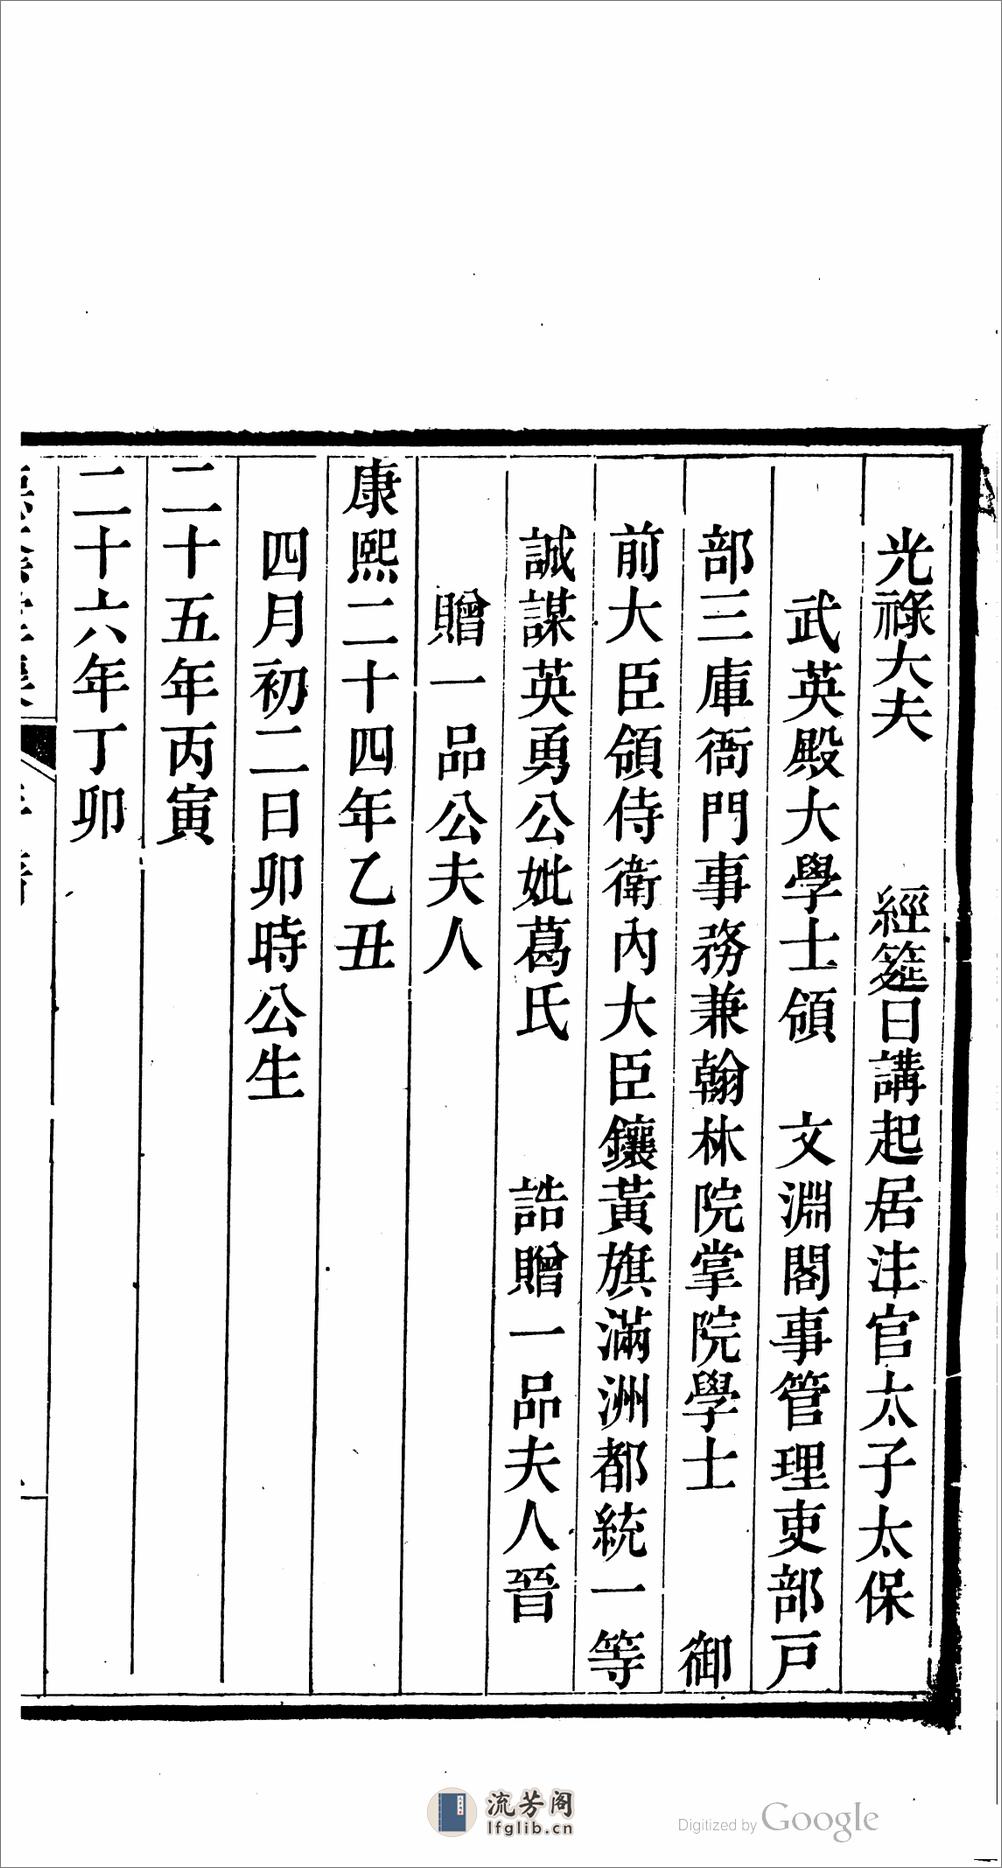 光祿大夫　　經筵日講起居注官太子太保
武英殿大學士領　文淵閣事管理吏部戸
部三庫衙門事務兼翰林院掌院學士　　御
前大臣領侍衛內大臣鑲黃旗滿洲都統一等
誠謀英勇公妣葛氏　　誥贈一品夫人晉
贈一品公夫人
康熙二十四年乙丑
四月初二日卯時公生
二十五年丙寅
二十六年丁卯
流芳阁
lfglib.cn
Digitized by Google